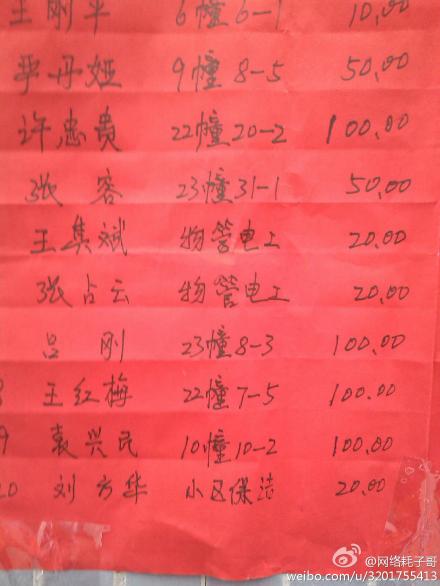 王刚平 6幢6-1 10.00
严丹娅 9幢8-5 50.00
许忠贵 22幢20-2 100.00
张容 23幢31-1 50.00
王集斌 物管电工 20.00
张占云 物管电工 20.00
吕刚 23幢8-3 100.00
8 王红梅 22幢7-5 100.00
9 袁兴民 10幢10-2 100.00
20 刘方华 小区保洁 20.00
@网络耗子哥
weibo.com/u/3201755413